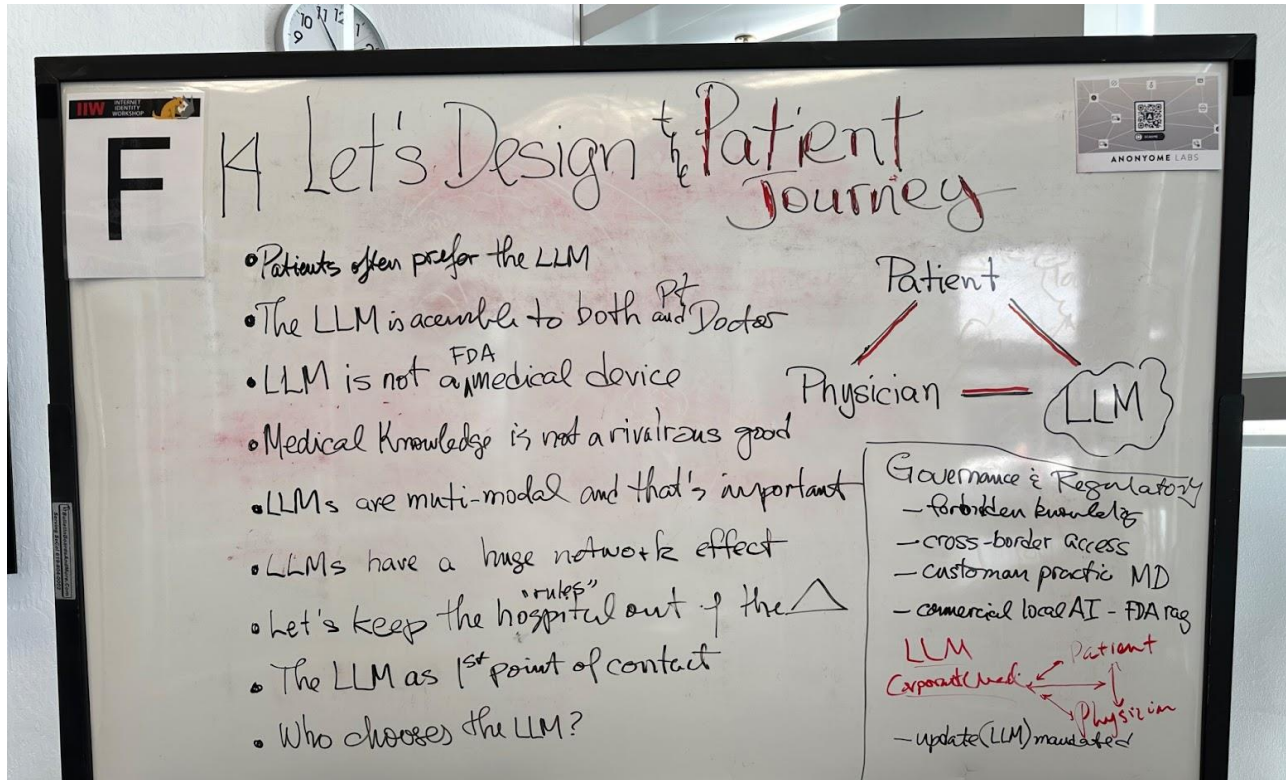 10 11 12 1
9
IIW INTERNET IDENTITY WORKSHOP
F
ANONYOME LABS
14 Let's Design the Patient
Journey
• Patients often prefer the LLM
• The LLM is accessible to both Pt and Doctor
• LLM is not a FDA medical device
• Medical Knowledge is not a rivalrous good
• LLMs are muti-modal and that's important
• LLMs have a huge network effect
• Let's keep the hospital "rules" out of the △
• The LLM as 1st point of contact
• Who chooses the LLM?
Patient
Physician
LLM
Governance & Regulatory
- forbidden knowledg
- cross-border access
- practic MD
- comercial local AI - FDA
LLM
Patient
Corporate
Physician
- update (LLM) mandated